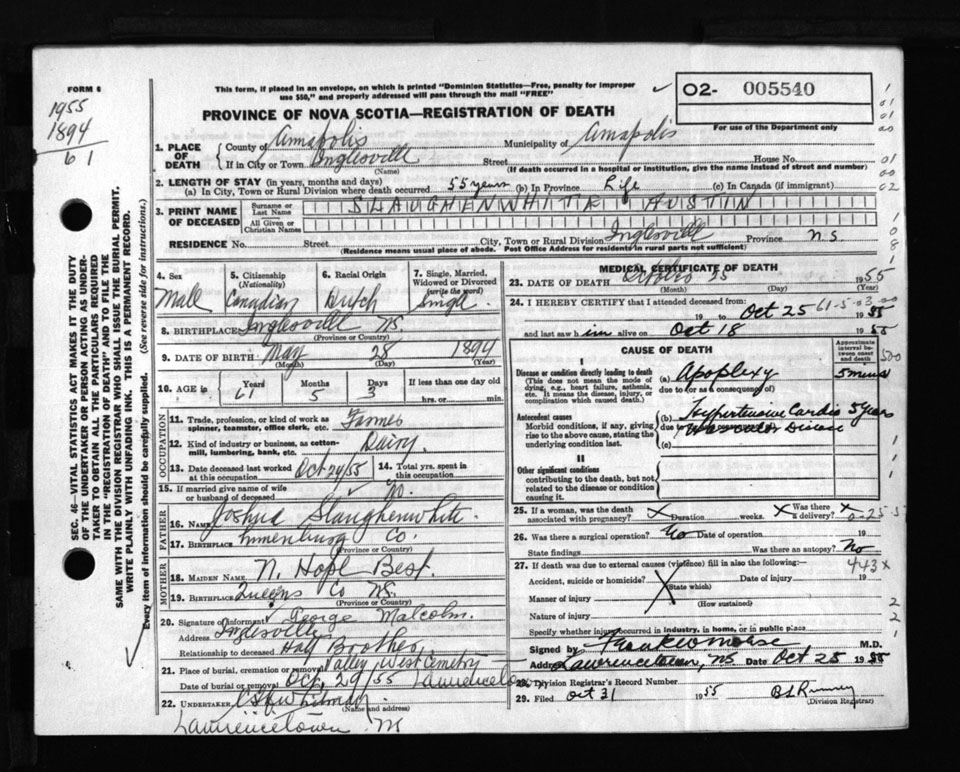 FORM 6
1955
1894
61
This form, if placed in an envelope, on which is printed "Dominion Statistics—Free, penalty for improper
use $50," and properly addressed will pass through the mail "FREE"
02- 005540
PROVINCE OF NOVA SCOTIA—REGISTRATION OF DEATH
For use of the Department only
1. PLACE OF DEATH
County of Annapolis Municipality of Annapolis
If in City or Town Inglesville Street House No.
(Name) (If death occurred in a hospital or institution, give the name instead of street and number)
2. LENGTH OF STAY (in years, months and days)
(a) In City, Town or Rural Division where death occurred 55 years (b) In Province Life (c) In Canada (if immigrant)
3. PRINT NAME OF DECEASED
Surname or Last Name SLAUGHENWHITE AUSTIN
All Given or Christian Names
RESIDENCE No. Street City, Town or Rural Division Inglesville Province N.S.
(Residence means usual place of abode. Post Office Address for residents in rural parts not sufficient)
SEC. 46—VITAL STATISTICS ACT MAKES IT THE DUTY
OF THE UNDERTAKER OR PERSON ACTING AS UNDER-
TAKER TO OBTAIN ALL THE PARTICULARS REQUIRED
IN THE "REGISTRATION OF DEATH" AND TO FILE THE
SAME WITH THE DIVISION REGISTRAR WHO SHALL ISSUE THE BURIAL PERMIT.
WRITE PLAINLY WITH UNFADING INK. THIS IS A PERMANENT RECORD.
Every item of information should be carefully supplied. (See reverse side for instructions.)
4. Sex
Male
5. Citizenship
(Nationality)
Canadian
6. Racial Origin
Dutch
7. Single, Married,
Widowed or Divorced
(write the word)
Single
8. BIRTHPLACE Inglesville NS
(Province or Country)
9. DATE OF BIRTH May 28 1894
(Month) (Day) (Year)
10. AGE in Years Months Days If less than one day old
61 5 3 hrs. or min.
OCCUPATION
11. Trade, profession, or kind of work as
spinner, teamster, office clerk, etc. Farmer
12. Kind of industry or business, as cotton-
mill, lumbering, bank, etc. Dairy
13. Date deceased last worked
at this occupation Oct 24/55
14. Total yrs. spent in
this occupation
15. If married give name of wife
or husband of deceased No.
FATHER
16. NAME Joshua Slaughenwhite
17. BIRTHPLACE Lunenburg Co.
(Province or Country)
MOTHER
18. MAIDEN NAME N. Hope Best.
19. BIRTHPLACE Queens Co NS.
(Province or Country)
20. Signature of informant George Malcolm.
Address Inglesville
Relationship to deceased Half Brother
21. Place of burial, cremation or removal Valley West Cemetry
Date of burial or removal Oct, 29/55 Lawrencetown
22. UNDERTAKER Whitman
(Name and address)
Lawrencetown NS
MEDICAL CERTIFICATE OF DEATH
23. DATE OF DEATH October 25 1955
(Month) (Day) (Year)
24. I HEREBY CERTIFY that I attended deceased from:
19 to Oct 25 1955
61-5-03
and last saw him alive on Oct 18 1955
CAUSE OF DEATH
Approximate
interval between
onset
and death
I
Disease or condition directly leading to death
(This does not mean the mode of
dying, e.g., heart failure, asthenia,
etc. It means the disease, injury, or
complication which caused death.)
(a) Apoplexy 5 mins
due to (or as a consequence of)
Antecedent causes
Morbid conditions, if any, giving
rise to the above cause, stating the
underlying condition last.
(b) Hypertensive Cardio 5 years
due to Vascular Disease
(c)
II
Other significant conditions
contributing to the death, but not
related to the disease or condition
causing it.
25. If a woman, was the death
associated with pregnancy? X Duration weeks. X Was there
a delivery? X
26. Was there a surgical operation? No Date of operation 19
State findings Was there an autopsy? No
27. If death was due to external causes (violence) fill in also the following:— 443X
Accident, suicide or homicide? Date of injury 19
(State which)
Manner of injury
(How sustained)
Nature of injury
Specify whether injury occurred in industry, in home, or in public place
Signed by Frank Morse M.D.
Address Lawrencetown, NS Date Oct 25 1955
28. Division Registrar's Record Number
29. Filed Oct 31 1955
(Division Registrar)